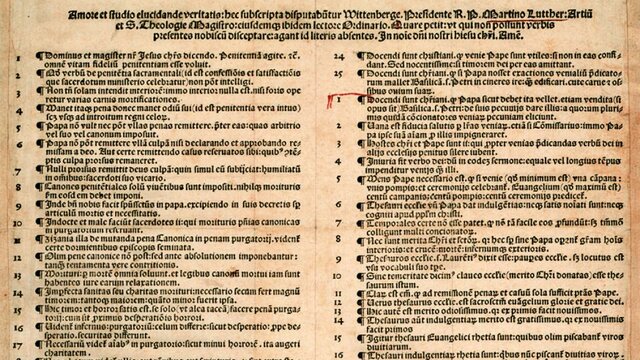 Amore et studio elucidande veritatis: hec subscripta disputabūtur Wittenberge. Presidente R. P. Martino Lutther: Artiū
et S. Theologie Magistro: eiusdemq̄ ibidem lectore Ordinario. Quare petit: vt qui non possunt verbis
presentes nobiscū disceptare: agant id literis absentes. In noīe dn̄i nostri hiesu chr̄i. Amē.
1 ¶Dominus et magister nr̄ Jesus chr̄s dicendo. Penitentiā agite. ⁊c.
omnē vitam fidelium penitentiam esse voluit.
2 ¶Qd̄ verbū de penitentia sacramētali (id est confessiōis et satisfactiōis
que sacerdotum ministerio celebratur) non pōt intelligi.
3 ¶Non tn̄ solam intendit interiorē: immo interior nulla est. nisi foris ope
retur varias carnis mortificationes.
4 ¶Manet itaq̄ pena donec manet odiū sui (id est penitentia vera intus)
scꝫ vsq̄ ad introitum regni celorum.
5 ¶Papa nō vult nec pōt vllas penas remittere. prēter eas: quas arbitrio
vel suo vel canonum imposuit.
6 ¶Papa nō pōt remittere vllā culpā nisi declarando et approbando re-
missam a deo. Aut certe remittendo casus reservatos sibi: quibꝰ ꝯtēptis
culpa prorsus remaneret.
7 ¶Nulli prorsus remittit deus culpā: quin simul eū subijciat: humiliatū
in omnibus: sacerdoti suo vicario.
8 ¶Canones penitētiales solū viuētibus sunt impositi. nihilq̄ morituris
fm̄ eosdem debet imponi.
9 ¶Inde bn̄ nobis facit spūssctūs in papa. excipiendo in suis decretis sp̄
articulū mortis et necessitatis.
10 ¶Indocte et male faciūt sacerdotes ij: qui morituris pn̄ias canonicas
in purgatorium reseruant.
11 ¶Zizania illa de mutanda pena Canonica in penam purgatorij. vident̄
certe dormientibus episcopis seminata.
12 ¶Olim pene canonice nō post: sed ante absolutionem imponebantur:
tanq̄ tentamenta vere contritionis.
13 ¶Morituri: p̄ mortē omnia soluunt. et legibus canonū mortui iam sunt
habentes iure earum relaxationem.
14 ¶Imperfecta sanitas seu charitas morituri: necessario secum fert magnū
timorem: tantoq̄ maiorem: quanto minor fuerit ipsa.
15 ¶Hic timor et horror: satis est. se solo (vt alia tacea) facere penā purga-
torij: cum sit proximus desperationis horrori.
16 ¶Videnē infernus: purgatoriū: celum differre: sicut desperatio: ꝓpe des-
peratio. securitas differunt.
17 ¶Necessariū videt̄ aīabꝰ in purgatorio sicut minui horrorē. ita augeri
charitatem.
24 ¶Docendi sunt christiani. q̄ venie Pape sunt vtiles: si non in eas confi-
dant. Sed nocentissime: Si timorem dei per eas amittant.
25 ¶Docendi sunt chr̄iani. q̄ si Papa nosset exactiones venialiū p̄dicato-
rum mallet Basilicā. s. Petri in cineres ire: q̄ȝ edificari. cute carne ⁊ os-
sibus ouium suaꝝ.
1 ¶Docendi sunt chr̄iani. q̄ Papa sicut debet ita vellet. etiam vendita (si
opus sit) Basilicā. s. Petri: de suis pecunijs dare illis: a quorum pluri-
mis quidā concionatores veniarum pecuniam eliciunt.
2 ¶Vana est fiducia salutis p̄ lr̄as veniarū. etiā si Cōmissarius: immo Pa-
pa ipse suā aīam p̄ illis impigneraret.
3 ¶Hostes chr̄i et Pape sunt ij: qui propter venias p̄dicandas verbū dei in
alijs ecclesijs penitus silere iubent.
4 ¶Iniuria fit verbo dei: dū in eodeȝ sermone: equale vel longius tēpus
impenditur venijs q̄ȝ illi.
5 ¶Mens Pape necessario est. q̄ si venie (qd̄ minimum est) vna cāpana:
vnis pompis: et ceremonijs celebrant̄. Euangelium (qd̄ maximū est)
centū campanis: centū pompis: centū ceremonijs predicetur.
6 ¶Thesauri ecclesie vn̄ Papa dat indulgentias: neq̄ satis nominati sunt: neq̄
cogniti apud pp̄lm chr̄i.
7 ¶Temporales certe nō esse patet. q̄ nō tā facile eos ꝓfundūt: sȝ tm̄mō
colligunt multi concionatorum.
8 ¶Nec sunt merita Christi et sctōrum. q̄ hec sp̄ sine Papa operant̄ grām hoīs
interioris: et crucē: mortē: infernumq̄ exterioris.
9 ¶Thesauros eccl̄ie s. Laurētiꝰ dixit esse: pauperes eccl̄ie. sȝ locutus est
vsu vocabuli suo tempore.
10 ¶Sine temeritate dicimꝰ claues eccl̄ie (merito Chr̄i donatas) esse the-
saurum istum.
11 ¶Claȝ est eñ. q̄ ad remissionē penaꝝ et casuū sola sufficit p̄tas Pape.
12 ¶Verus thesaurus eccl̄ie est. sacrosctm̄ euangelium glorie et gratie dei.
13 ¶Hic autē est merito odiosissimus. q̄ ex primis facit nouissimos.
14 ¶Thesaurus autē indulgentiarum merito est gratissimus. q̄ ex nouissimis
facit primos
15 ¶Igitur thesauri Euangelici rhetia sunt: quibus olim piscabant̄ viros
diuitiarum.
16 ¶Thesauri indulgentiarū rhetia sunt: q̄bꝰ nūc piscant̄ diuitias viroꝝ